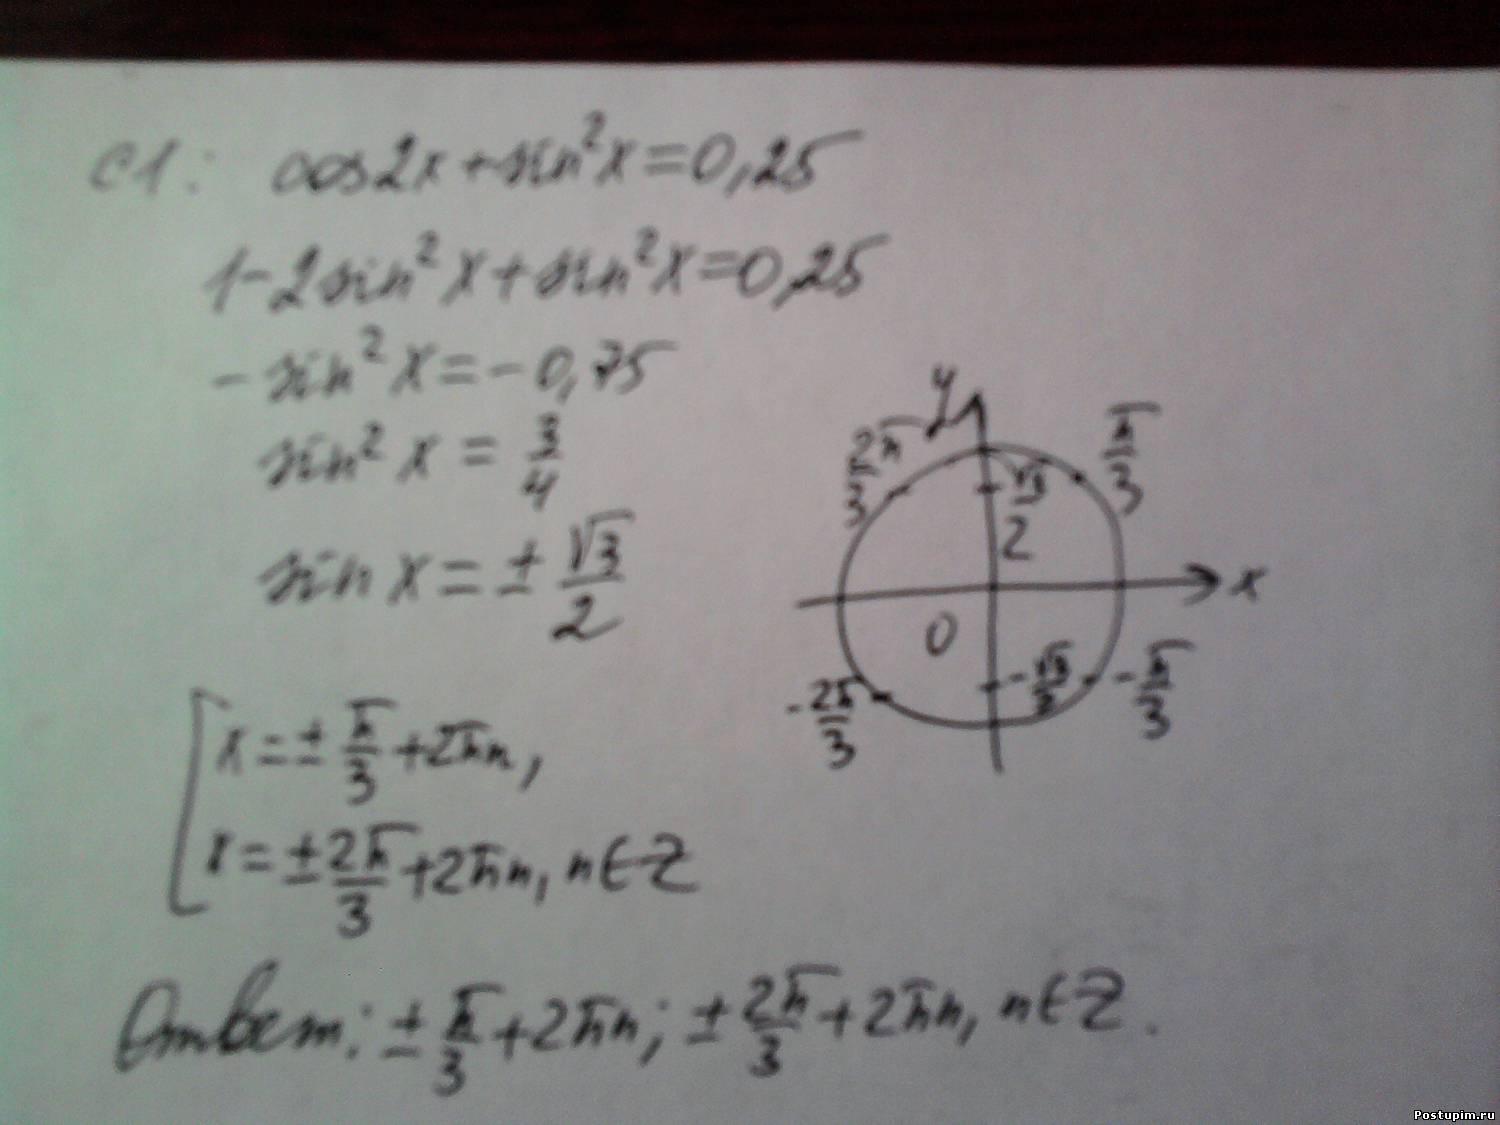 C1: cos2x+sin²x=0,25
1-2sin²x+sin²x=0,25
-sin²x=-0,75
sin²x=3/4
sinx=±√3/2
x=±π/3+2πn,
x=±2π/3+2πn, n∈Z
y
2π/3
π/3
√3/2
x
0
-√3/2
-π/3
-2π/3
Ответ: ±π/3+2πn; ±2π/3+2πn, n∈Z.
Postupim.ru